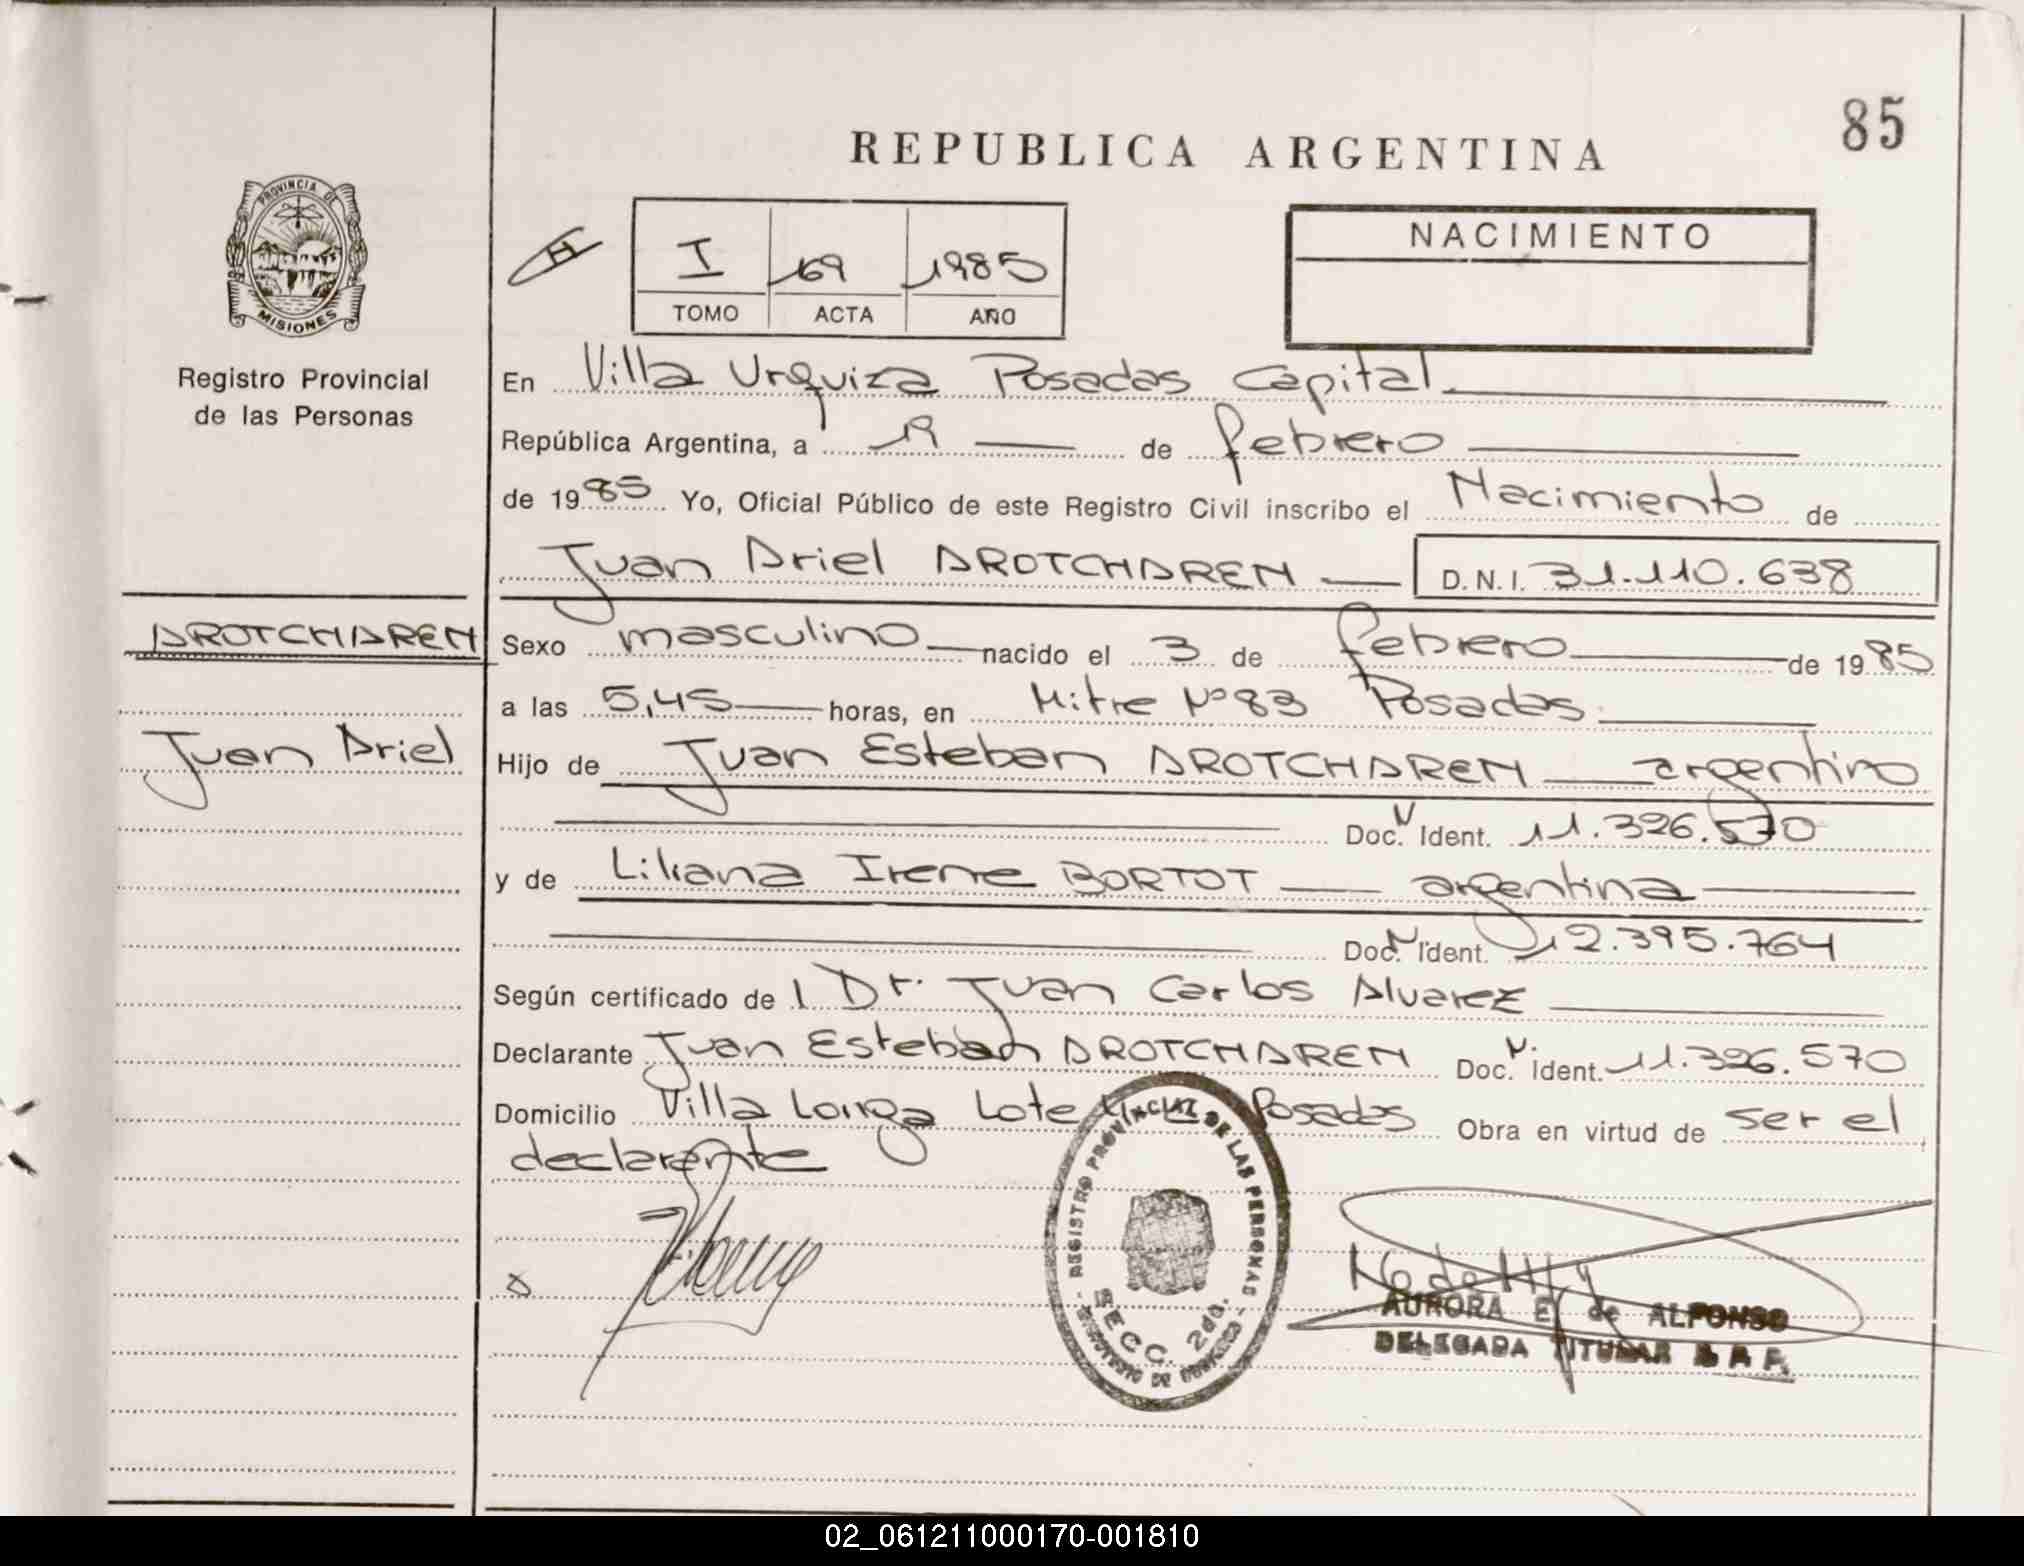 85
REPUBLICA ARGENTINA
PROVINCIA DE
MISIONES
Registro Provincial
de las Personas
I 169 1985
TOMO ACTA AÑO
NACIMIENTO
En Villa Urquiza Posadas Capital
República Argentina, a 19 de febrero
de 1985 Yo, Oficial Público de este Registro Civil inscribo el Nacimiento de
Juan Ariel AROTCHAREN D.N.I. 31.110.638
AROTCHAREN
Juan Ariel
Sexo masculino nacido el 3 de febrero de 1985
a las 5,45 horas, en Mitre Nº 83 Posadas
Hijo de Juan Esteban AROTCHAREN argentino
Doc. Ident. 11.326.570
y de Liliana Irene BORTOT argentina
Doc. Ident. 12.395.764
Según certificado de Dr. Juan Carlos Alvarez
Declarante Juan Esteban AROTCHAREN Doc. ident. 11.326.570
Domicilio Villa Longa Lote Posadas Obra en virtud de ser el
declarante
REGISTRO PROVINCIAL DE LAS PERSONAS
SECC. 2da.
AURORA E. de ALFONSO
DELEGADA TITULAR
02_061211000170-001810